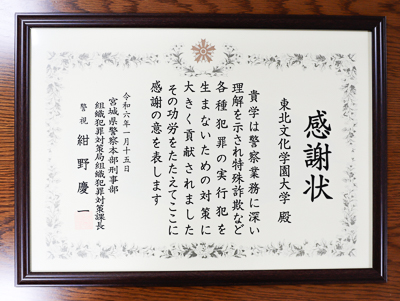 感謝状
東北文化学園大学 殿
貴学は警察業務に深い
理解を示され特殊詐欺など
各種犯罪の実行犯を
生まないための対策に
大きく貢献されました
その功労をたたえてここに
感謝の意を表します
令和六年一月十五日
宮城県警察本部刑事部
組織犯罪対策局組織犯罪対策課長
警視 紺野慶一